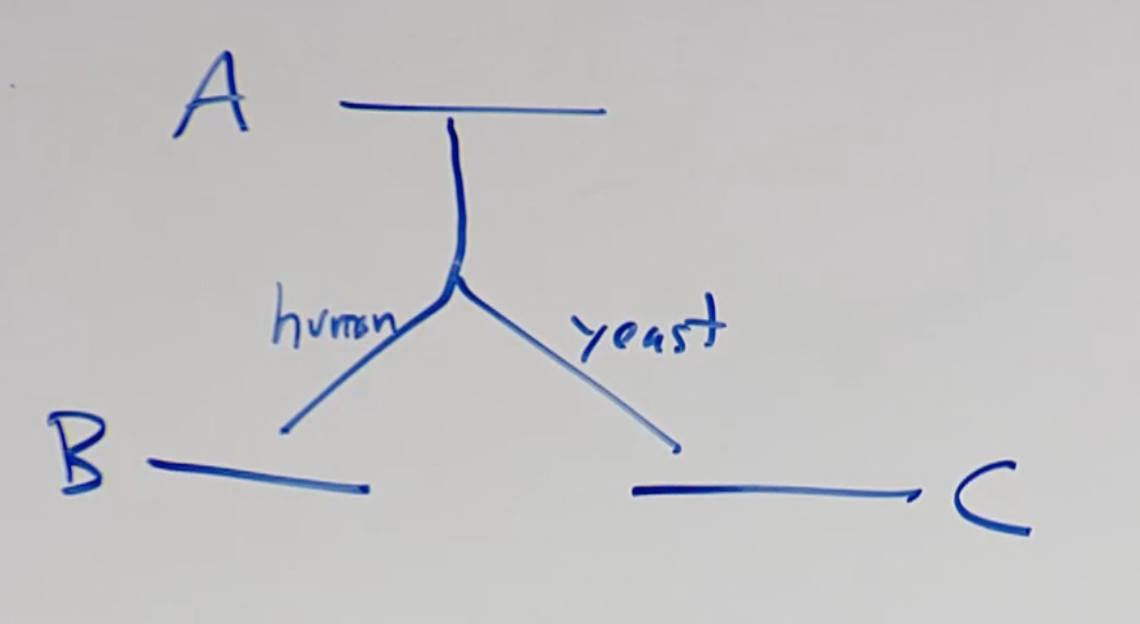 A
human
yeast
B
C